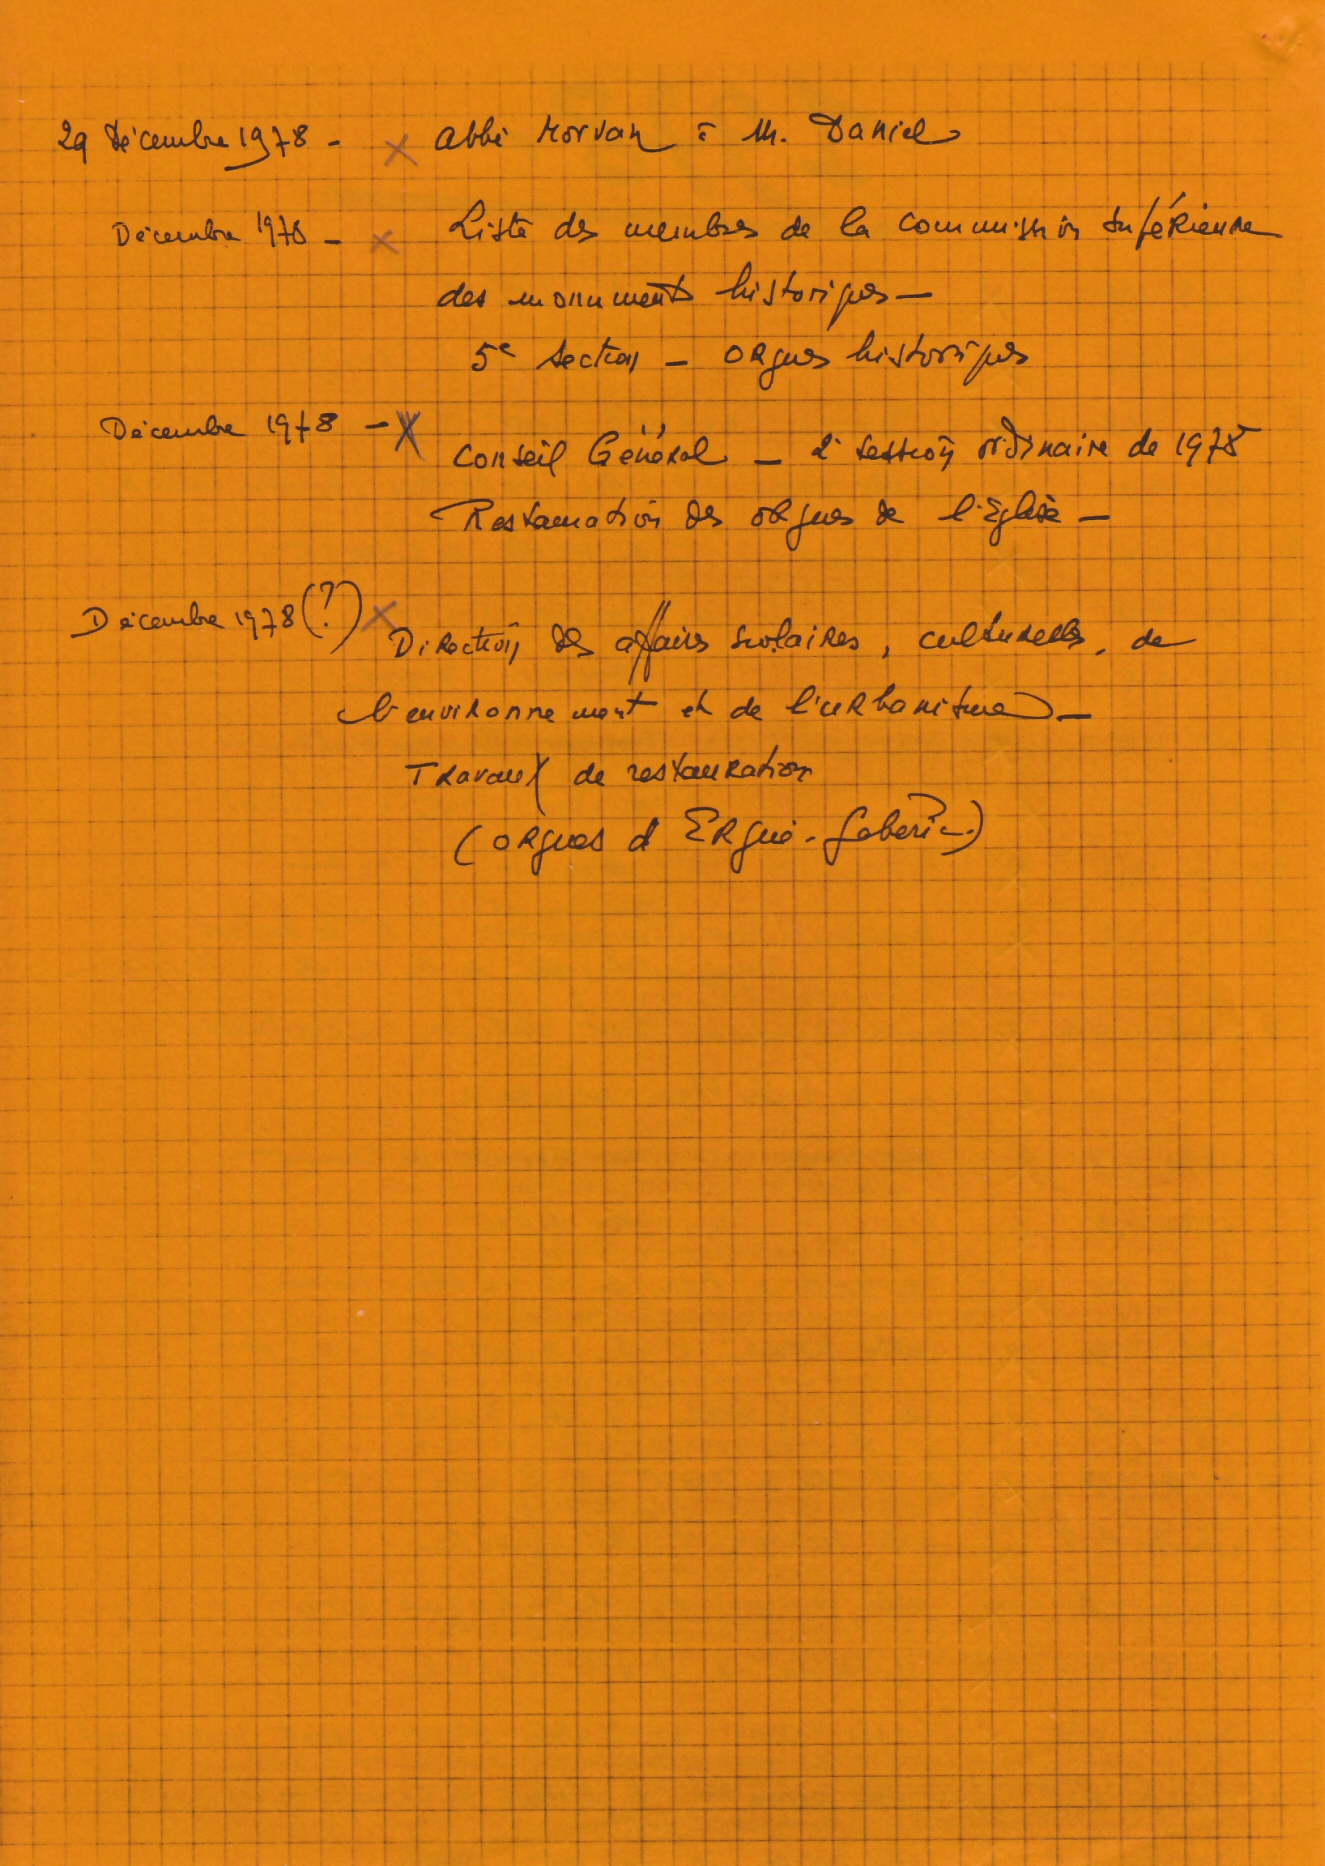 29 décembre 1978 - × Abbé Morvan à M. Daniel
Décembre 1978 - × Liste des membres de la commission supérieure
des monuments historiques -
5e section - orgues historiques
Décembre 1978 - × Conseil Général - 2e session ordinaire de 1978
Restauration des orgues de l'Eglise -
Décembre 1978 (?) × Direction des affaires scolaires, culturelles, de
l'environnement et de l'urbanisme -
Travaux de restauration
(orgues d'Ergué-Gabéric)